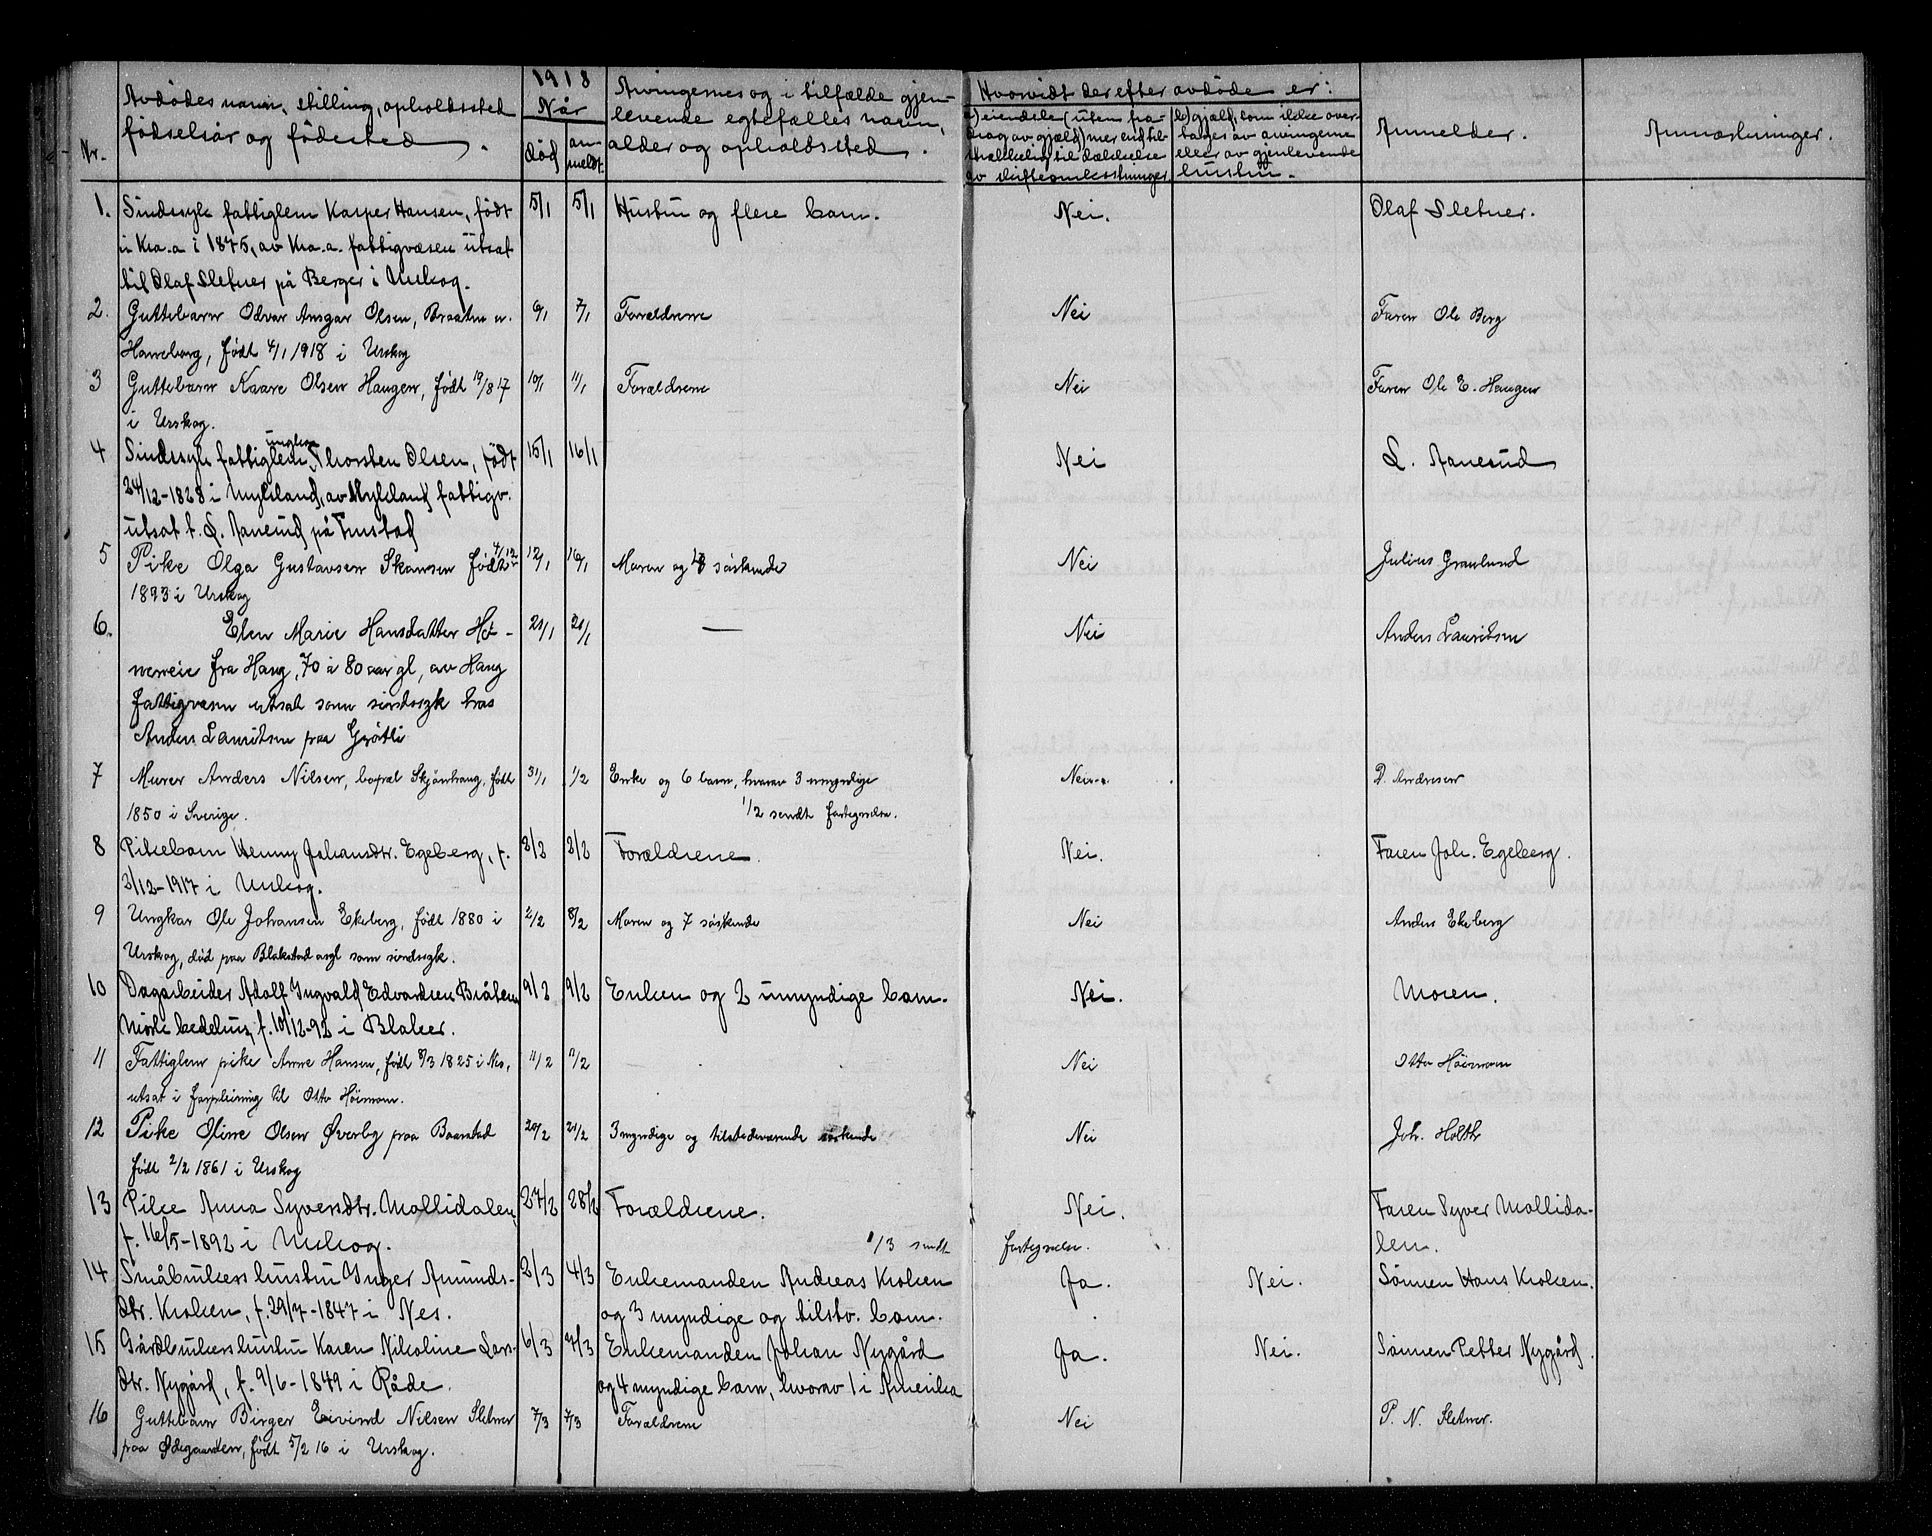 1918
Avdødes navn, stilling, opholdssted
fødselsår og fødested.
Nr.
Når
død
an-
meldt.
Arvingernes og i tilfælde gjen-
levende egtefælles navn,
alder og opholdssted.
Hvorvidt der efter avdøde er:
a) eiendele (uten fra-
drag av gjæld) mer end til-
strækkelig til dækkelse
av skifteomkostninger
b) gjæld, som ikke over-
tages av arvingerne
eller av gjenlevende
hustru.
Anmelder.
Anmærkninger.
1. Sindssyk fattiglem Kasper Hansen, født 5/1 5/1 Hustru og flere barn. Nei. Olaf Sletner.
i Kra.a i 1875, av Kra.a. fattigvæsen utsat
til Olaf Sletner på Berger i Urskog.
2. Guttebarn Odvar Ansgar Olsen, Braaten u. 6/1 7/1 Forældrene Nei Faren Ole Berg
Haneborg, født 4/1 1918 i Urskog
3 Guttebarn Kaare Olsen Haugen, født 19/8 17 10/1 11/1 Forældrene Nei Faren Ole E. Haugen
i Urskog.
4 Sindssyk fattiglem ungkar Thorsten Olsen, født 15/1 16/1 Nei L. Aanerud
24/12-1828 i Mykland, av Mykland fattigv.
utsat t. L. Aanerud på
5 Pike Olga Gustavsen Skansen født 4/12 12/1 16/1 Moren og 4 søskende Nei Julius Granlund
1893 i Urskog
6. Elen Marie Hansdatter 21/1 21/1 — Nei Anders Lauritsen
fra Haug, 70 à 80 aar gl, av Haug
fattigvæsen utsat som sindssyk hos
Anders Lauritsen paa Grøtli
7 Murer Anders Nilsen, bopæl Skjønhaug, født 31/1 1/2 Enke og 6 barn, hvorav 3 umyndige Nei D. Andresen
1850 i Sverige. 1/2 sendt fortegnelse.
8 Pikebarn Henny Johansdtr. Egeberg, f. 2/2 2/2 Forældrene. Nei. Faren Joh. Egeberg.
2/12-1917 i Urskog.
9 Ungkar Ole Johansen Ekeberg, født 1880 i 2/2 8/2 Moren og 7 søskende Nei Anders Ekeberg
Urskog, død paa Blakstad asyl som sindssyk.
10 Dagarbeider Adolf Ingvald Edvardsen Bråten 9/2 9/2 Enken og 2 umyndige barn. Nei. Moren.
bedehus, f. 10/12-92 i Blaker.
11 Fattiglem pike Anne Hansen, født 8/3 1825 i Nes, 11/2 11/2 Nei Otto Høimom
utsat i forpleining til Otto Høimom.
12 Pike Oline Olsen Øverby paa Baarstad 20/2 21/2 3 myndige og tilstedeværende søskende Nei Joh. Holth
født 2/2 1861 i Urskog
13 Pike Anna Syversdtr. Mollidalen, 27/2 28/2 Forældrene. Nei. Faren Syver Mollida-
f. 16/5-1892 i Urskog. 1/3 sendt fortegnelse. len.
14 Småbrukers hustru Inger Amunds- 2/3 4/3 Enkemanden Andreas Kroken Ja. Nei. Sønnen Hans Kroken.
dtr. Kroken, f. 29/7-1847 i Nes. og 3 myndige og tilstv. barn.
15 Gårdbrukers hustru Karen Nikoline Lars- 6/3 7/3 Enkemanden Johan Nygård Ja. Nei. Sønnen Petter Nygård.
dtr. Nygård, f. 9/6-1849 i Råde. og 4 myndige barn, hvorav 1 i Amerika
16 Guttebarn Birger Eivind Nilsen Sletner 7/3 7/3 Forældrene Nei P. N. Sletner.
paa Ødegaarden, født 5/2 16 i Urskog.